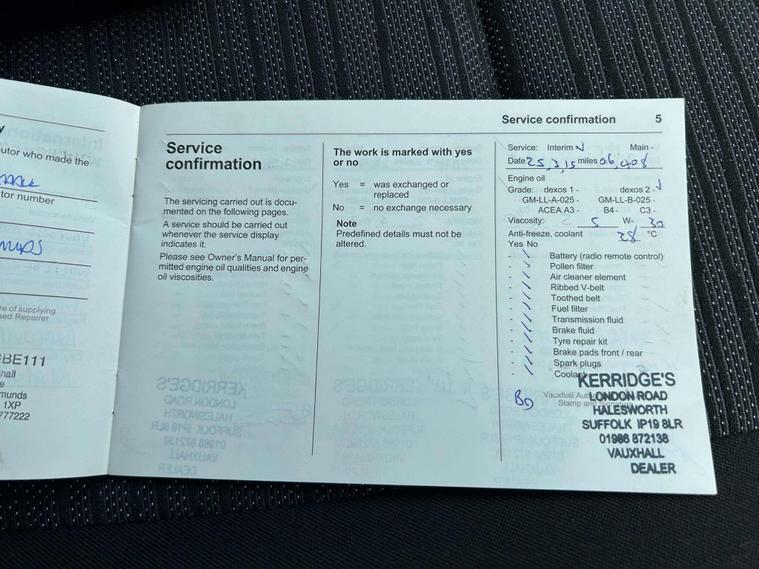 utor who made the
tor number
re of supplying
sed Repairer
BE111
hall
e
munds
1XP
777222
Service confirmation 5
Service
confirmation
The servicing carried out is docu-
mented on the following pages.
A service should be carried out
whenever the service display
indicates it.
Please see Owner's Manual for per-
mitted engine oil qualities and engine
oil viscosities.
The work is marked with yes
or no
Yes = was exchanged or
replaced
No = no exchange necessary
Note
Predefined details must not be
altered.
Service: Interim ✓ Main -
Date 25,3,15 miles 06,408
Engine oil
Grade: dexos 1 - dexos 2 - ✓
GM-LL-A-025 - GM-LL-B-025 -
ACEA A3 - B4 - C3 -
Viscosity: 5 W- 30
Anti-freeze, coolant 38 °C
Yes No
- ✓ Battery (radio remote control)
- ✓ Pollen filter
- ✓ Air cleaner element
- ✓ Ribbed V-belt
- ✓ Toothed belt
- ✓ Fuel filter
- ✓ Transmission fluid
- ✓ Brake fluid
- ✓ Tyre repair kit
- ✓ Brake pads front / rear
- ✓ Spark plugs
- ✓ Coolant
KERRIDGE'S
LONDON ROAD
HALESWORTH
SUFFOLK IP19 8LR
01986 872138
VAUXHALL
DEALER
Vauxhall
Stamp and